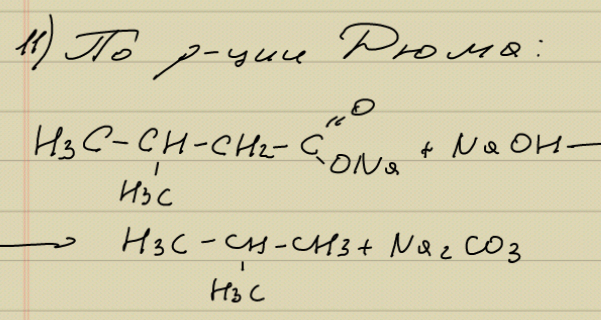 11) По р-ции Дюма:
H3C-CH-CH2-C=O
ONa + NaOH—
H3C
→ H3C-CH-CH3 + Na2CO3
H3C